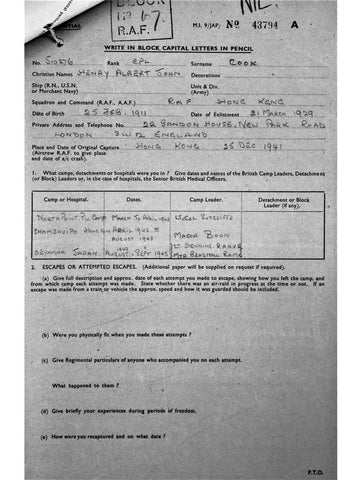 NIL.
BLOCK
No 67.
R.A.F.
M.I. 9/JAP/ No 43794 A
WRITE IN BLOCK CAPITAL LETTERS IN PENCIL
No. 510276 Rank CPL Surname COOK
Christian Names HENRY ALBERT JOHN Decorations
Ship (R.N., U.S.N. or Merchant Navy) Unit & Div. (Army)
Squadron and Command (R.A.F., A.A.F.) RAF HONG KONG
Date of Birth 25 FEB. 1911 Date of Enlistment 21 MARCH 1929
Private Address and Telephone No. 22 SANDON HOUSE, NEW PARK ROAD
LONDON SW12 ENGLAND
Place and Date of Original Capture HONG KONG 25 DEC 1941
(Aircrew R.A.F. to give place
and date of a/c crash).
1. What camps, detachments or hospitals were you in? Give dates and names of the British Camp Leaders, Detachment
(or Block) Leaders or, in case of hospitals, the Senior British Medical Officers.
Camp or Hospital. Dates. Camp Leader. Detachment or Block Leader (if any).
NORTH POINT, MARCH TO APRIL 1942 LT. COL SUTCLIFFE
SHAMSHUIPO APRIL 1942 TO AUGUST 1943 MAJOR BOON
JAPAN AUGUST - SEPT 1945
2. ESCAPES OR ATTEMPTED ESCAPES. (Additional paper will be supplied on request if required).
(a) Give full description and approx. date of each attempt you made to escape, showing how you left the camp, and
from which camp each attempt was made. State whether there was an air-raid in progress at the time or not. If an
escape was made from a train or vehicle the approx. speed and how it was guarded should be included.
(b) Were you physically fit when you made these attempts?
(c) Give Regimental particulars of anyone who accompanied you on each attempt.
What happened to them?
(d) Give briefly your experiences during periods of freedom.
(e) How were you recaptured and on what date?
P.T.O.